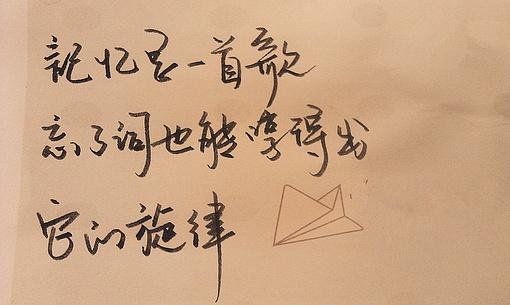 记忆是一首歌
忘了词也能哼得出
它的旋律